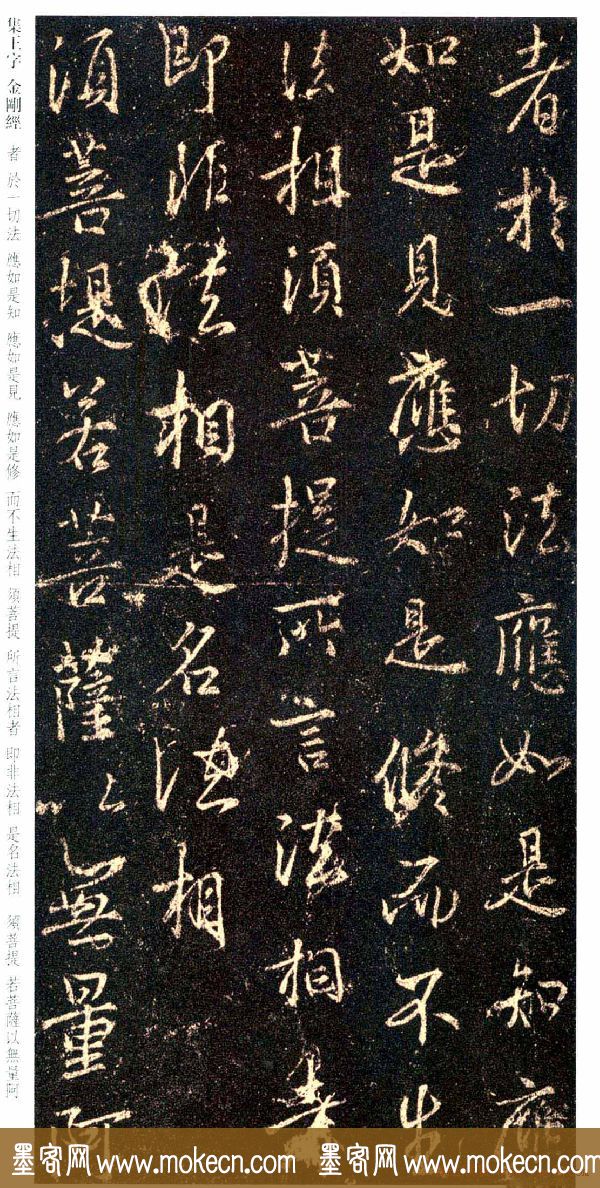 者於一切法應如是知應
如是見應如是修而不生
法相須菩提所言法相者
即非法相是名法相
須菩提若菩薩以無量阿
集王字 金剛經 者 於一切法 應如是知 應如是見 應如是修 而不生法相 須菩提 所言法相者 即非法相 是名法相 須菩提 若菩薩以無量阿
墨客网 www.mokecn.com 墨客网 www.mokecn.com